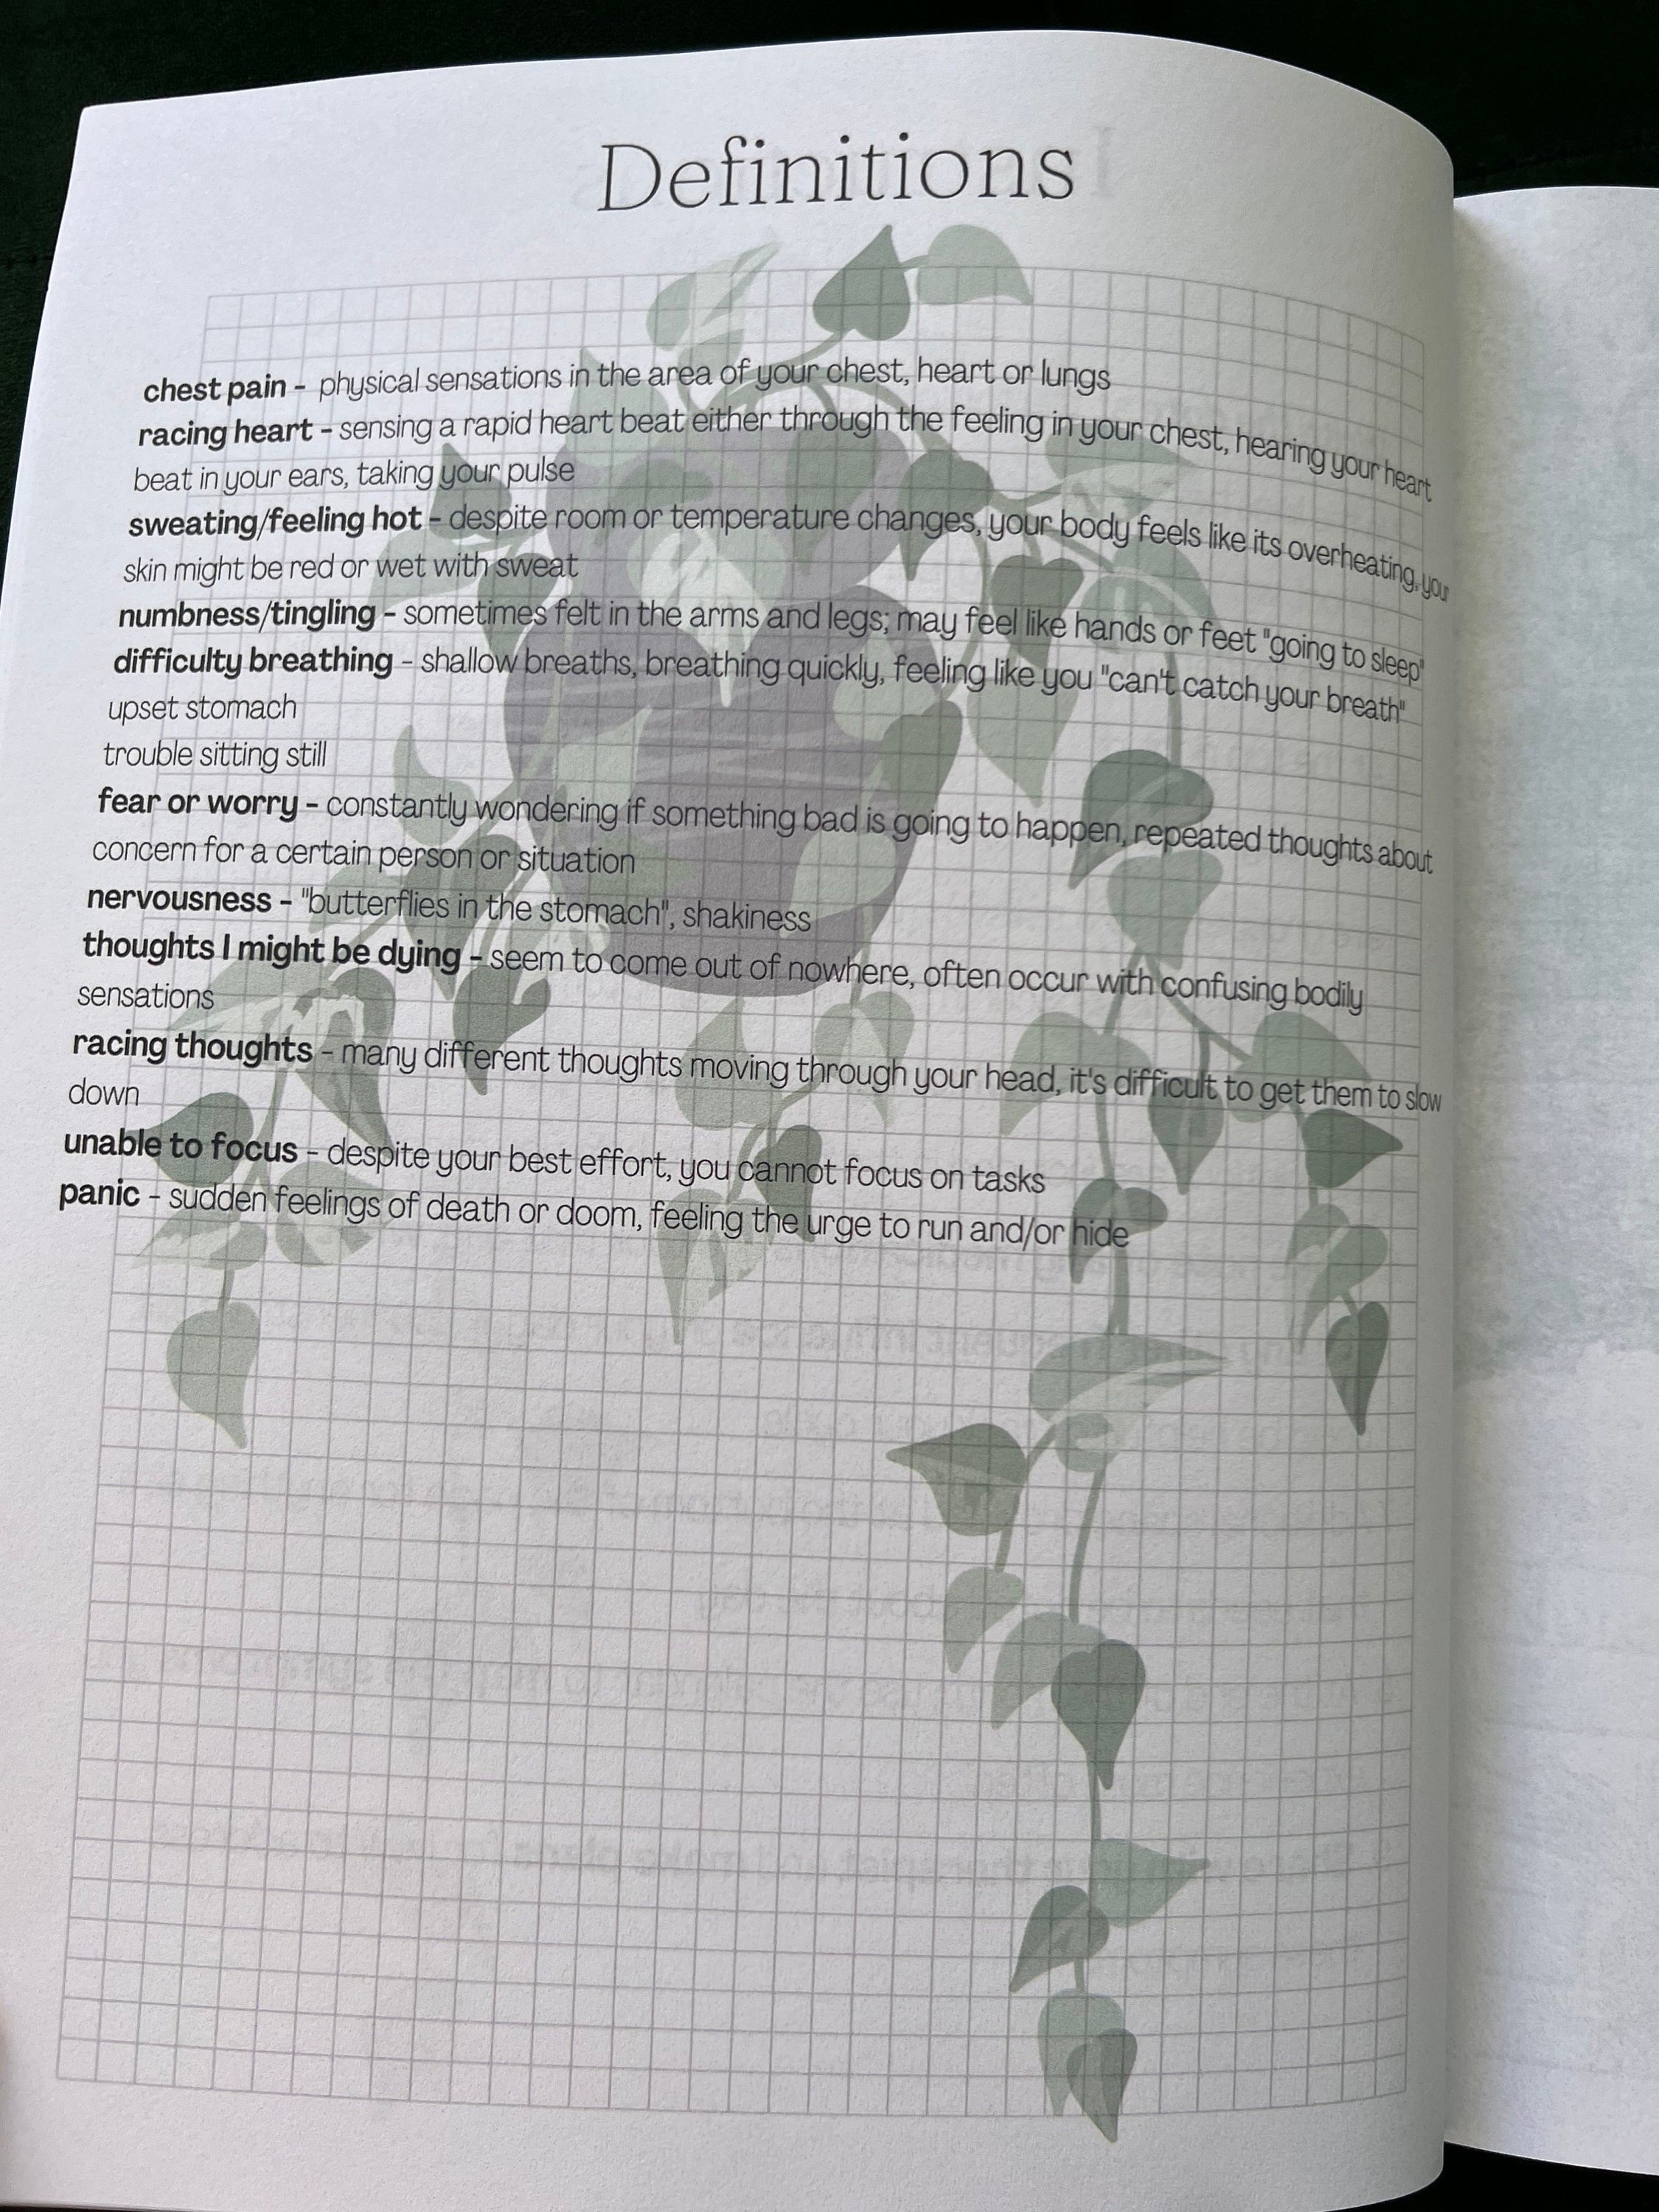 Definitions
chest pain - physical sensations in the area of your chest, heart or lungs
racing heart - sensing a rapid heart beat either through the feeling in your chest, hearing your heart
beat in your ears, taking your pulse
sweating/feeling hot - despite room or temperature changes, your body feels like its overheating, your
skin might be red or wet with sweat
numbness/tingling - sometimes felt in the arms and legs; may feel like hands or feet "going to sleep"
difficulty breathing - shallow breaths, breathing quickly, feeling like you "can't catch your breath"
upset stomach
trouble sitting still
fear or worry - constantly wondering if something bad is going to happen, repeated thoughts about
concern for a certain person or situation
nervousness - "butterflies in the stomach", shakiness
thoughts I might be dying - seem to come out of nowhere, often occur with confusing bodily
sensations
racing thoughts - many different thoughts moving through your head, it's difficult to get them to slow
down
unable to focus - despite your best effort, you cannot focus on tasks
panic - sudden feelings of death or doom, feeling the urge to run and/or hide